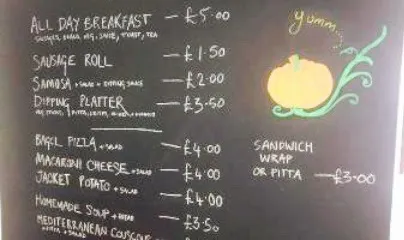 ALL DAY BREAKFAST — £5.00
SAUSAGE ROLL — £1.50
SAMOSA + SALAD + DIPPING SAUCE — £2.00
DIPPING PLATTER — £3.50
BAGEL PIZZA + SALAD — £4.00
MACARONI CHEESE + SALAD — £4.00
JACKET POTATO + SALAD — £4.00
HOMEMADE SOUP + BREAD — £3.50
MEDITERRANEAN COUSCOUS
yumm
SANDWICH
WRAP
OR PITTA — £3.00